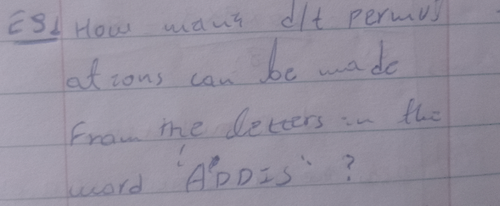 Es1 How many d/t permut
ations can be made
From the letters in the
word 'ADDIS' ?